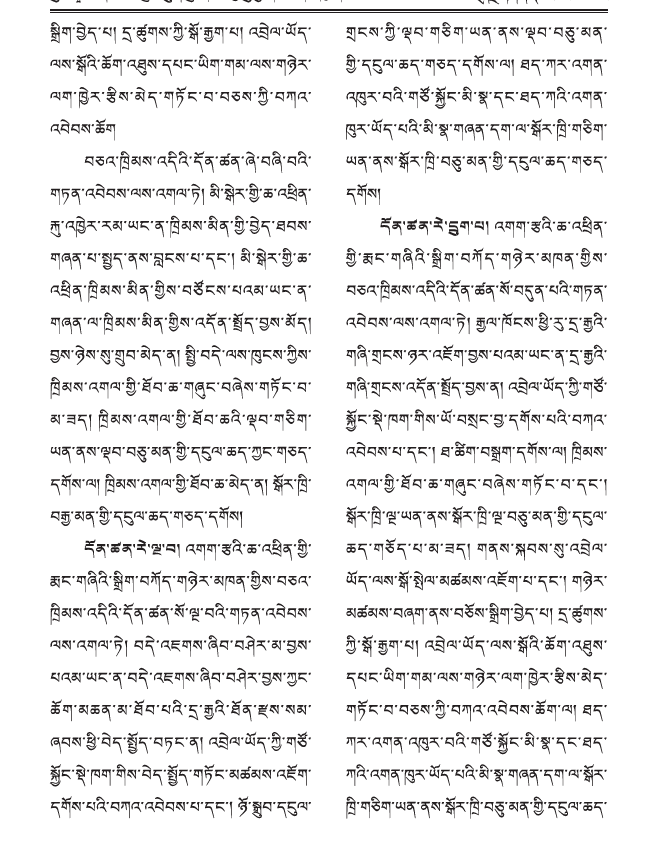 སྒྲིག་བྱེད་པ། དྲ་ཚིགས་ཀྱི་སྒོ་རྒྱག་པ། འབྲེལ་ཡོད་
ལས་སྒོའི་ཆོག་འཐུས་དཔང་ཡིག་གམ་ལས་གཉེར་
ལག་ཁྱེར་རྩིས་མེད་གཏོང་བ་བཅས་ཀྱི་བཀའ་
འབེབས་ཆོག
བཅའ་ཁྲིམས་འདིའི་དོན་ཚན་ཞེ་བཞི་བའི་
གཏན་འབེབས་ལས་འགལ་ཏེ། མི་སྒེར་གྱི་ཆ་འཕྲིན་
རྐུ་འཁྱེར་རམ་ཡང་ན་ཁྲིམས་མིན་གྱི་བྱེད་ཐབས་
གཞན་པ་སྤྱད་ནས་བླངས་པ་དང་། མི་སྒེར་གྱི་ཆ་
འཕྲིན་ཁྲིམས་མིན་གྱིས་བཙོངས་པའམ་ཡང་ན་
གཞན་ལ་ཁྲིམས་མིན་གྱིས་འདོན་སྤྲོད་བྱས་མོད།
བྱས་ཉེས་སུ་གྲུབ་མེད་ན། སྤྱི་བདེ་ལས་ཁུངས་ཀྱིས་
ཁྲིམས་འགལ་གྱི་ཐོབ་ཆ་གཞུང་བཞེས་གཏོང་བ་
མ་ཟད། ཁྲིམས་འགལ་གྱི་ཐོབ་ཆའི་ལྡབ་གཅིག་
ཡན་ནས་ལྡབ་བཅུ་མན་གྱི་དངུལ་ཆད་ཀྱང་གཅད་
དགོས་ལ། ཁྲིམས་འགལ་གྱི་ཐོབ་ཆ་མེད་ན། སྒོར་ཁྲི་
བརྒྱ་མན་གྱི་དངུལ་ཆད་གཅད་དགོས།
དོན་ཚན་རེ་ལྔ་བ། འགག་རྩའི་ཆ་འཕྲིན་གྱི་
རྨང་གཞིའི་སྒྲིག་བཀོད་གཉེར་མཁན་གྱིས་བཅའ་
ཁྲིམས་འདིའི་དོན་ཚན་སོ་ལྔ་བའི་གཏན་འབེབས་
ལས་འགལ་ཏེ། བདེ་འཇགས་ཞིབ་བཤེར་མ་བྱས་
པའམ་ཡང་ན་བདེ་འཇགས་ཞིབ་བཤེར་བྱས་ཀྱང་
ཆོག་མཆན་མ་ཐོབ་པའི་དྲ་རྒྱའི་ཐོན་རྫས་སམ་
ཞབས་ཕྱི་བེད་སྤྱོད་བཏང་ན། འབྲེལ་ཡོད་ཀྱི་གཙོ་
སྐྱོང་སྡེ་ཁག་གིས་བེད་སྤྱོད་གཏོང་མཚམས་འཇོག་
དགོས་པའི་བཀའ་འབེབས་པ་དང་། ཉོ་སྒྲུབ་དངུལ་
གྲངས་ཀྱི་ལྡབ་གཅིག་ཡན་ནས་ལྡབ་བཅུ་མན་
གྱི་དངུལ་ཆད་གཅད་དགོས་ལ། ཐད་ཀར་འགན་
འཁུར་བའི་གཙོ་སྐྱོང་མི་སྣ་དང་ཐད་ཀའི་འགན་
ཁུར་ཡོད་པའི་མི་སྣ་གཞན་དག་ལ་སྒོར་ཁྲི་གཅིག་
ཡན་ནས་སྒོར་ཁྲི་བཅུ་མན་གྱི་དངུལ་ཆད་གཅད་
དགོས།
དོན་ཚན་རེ་དྲུག་པ། འགག་རྩའི་ཆ་འཕྲིན་
གྱི་རྨང་གཞིའི་སྒྲིག་བཀོད་གཉེར་མཁན་གྱིས་
བཅའ་ཁྲིམས་འདིའི་དོན་ཚན་སོ་བདུན་པའི་གཏན་
འབེབས་ལས་འགལ་ཏེ། རྒྱལ་ཁོངས་ཕྱི་རུ་དྲ་རྒྱའི་
གཞི་གྲངས་ཉར་འཇོག་བྱས་པའམ་ཡང་ན་དྲ་རྒྱའི་
གཞི་གྲངས་འདོན་སྤྲོད་བྱས་ན། འབྲེལ་ཡོད་ཀྱི་གཙོ་
སྐྱོང་སྡེ་ཁག་གིས་ཡོ་བསྲང་བྱ་དགོས་པའི་བཀའ་
འབེབས་པ་དང་། ཐ་ཚིག་བསྒྲག་དགོས་ལ། ཁྲིམས་
འགལ་གྱི་ཐོབ་ཆ་གཞུང་བཞེས་གཏོང་བ་དང་།
སྒོར་ཁྲི་ལྔ་ཡན་ནས་སྒོར་ཁྲི་ལྔ་བཅུ་མན་གྱི་དངུལ་
ཆད་གཅོད་པ་མ་ཟད། གནས་སྐབས་སུ་འབྲེལ་
ཡོད་ལས་སྒོ་སྤེལ་མཚམས་འཇོག་པ་དང་། གཉེར་
མཚམས་བཞག་ནས་བཅོས་སྒྲིག་བྱེད་པ། དྲ་ཚིགས་
ཀྱི་སྒོ་རྒྱག་པ། འབྲེལ་ཡོད་ལས་སྒོའི་ཆོག་འཐུས་
དཔང་ཡིག་གམ་ལས་གཉེར་ལག་ཁྱེར་རྩིས་མེད་
གཏོང་བ་བཅས་ཀྱི་བཀའ་འབེབས་ཆོག་ལ། ཐད་
ཀར་འགན་འཁུར་བའི་གཙོ་སྐྱོང་མི་སྣ་དང་ཐད་
ཀའི་འགན་ཁུར་ཡོད་པའི་མི་སྣ་གཞན་དག་ལ་སྒོར་
ཁྲི་གཅིག་ཡན་ནས་སྒོར་ཁྲི་བཅུ་མན་གྱི་དངུལ་ཆད་